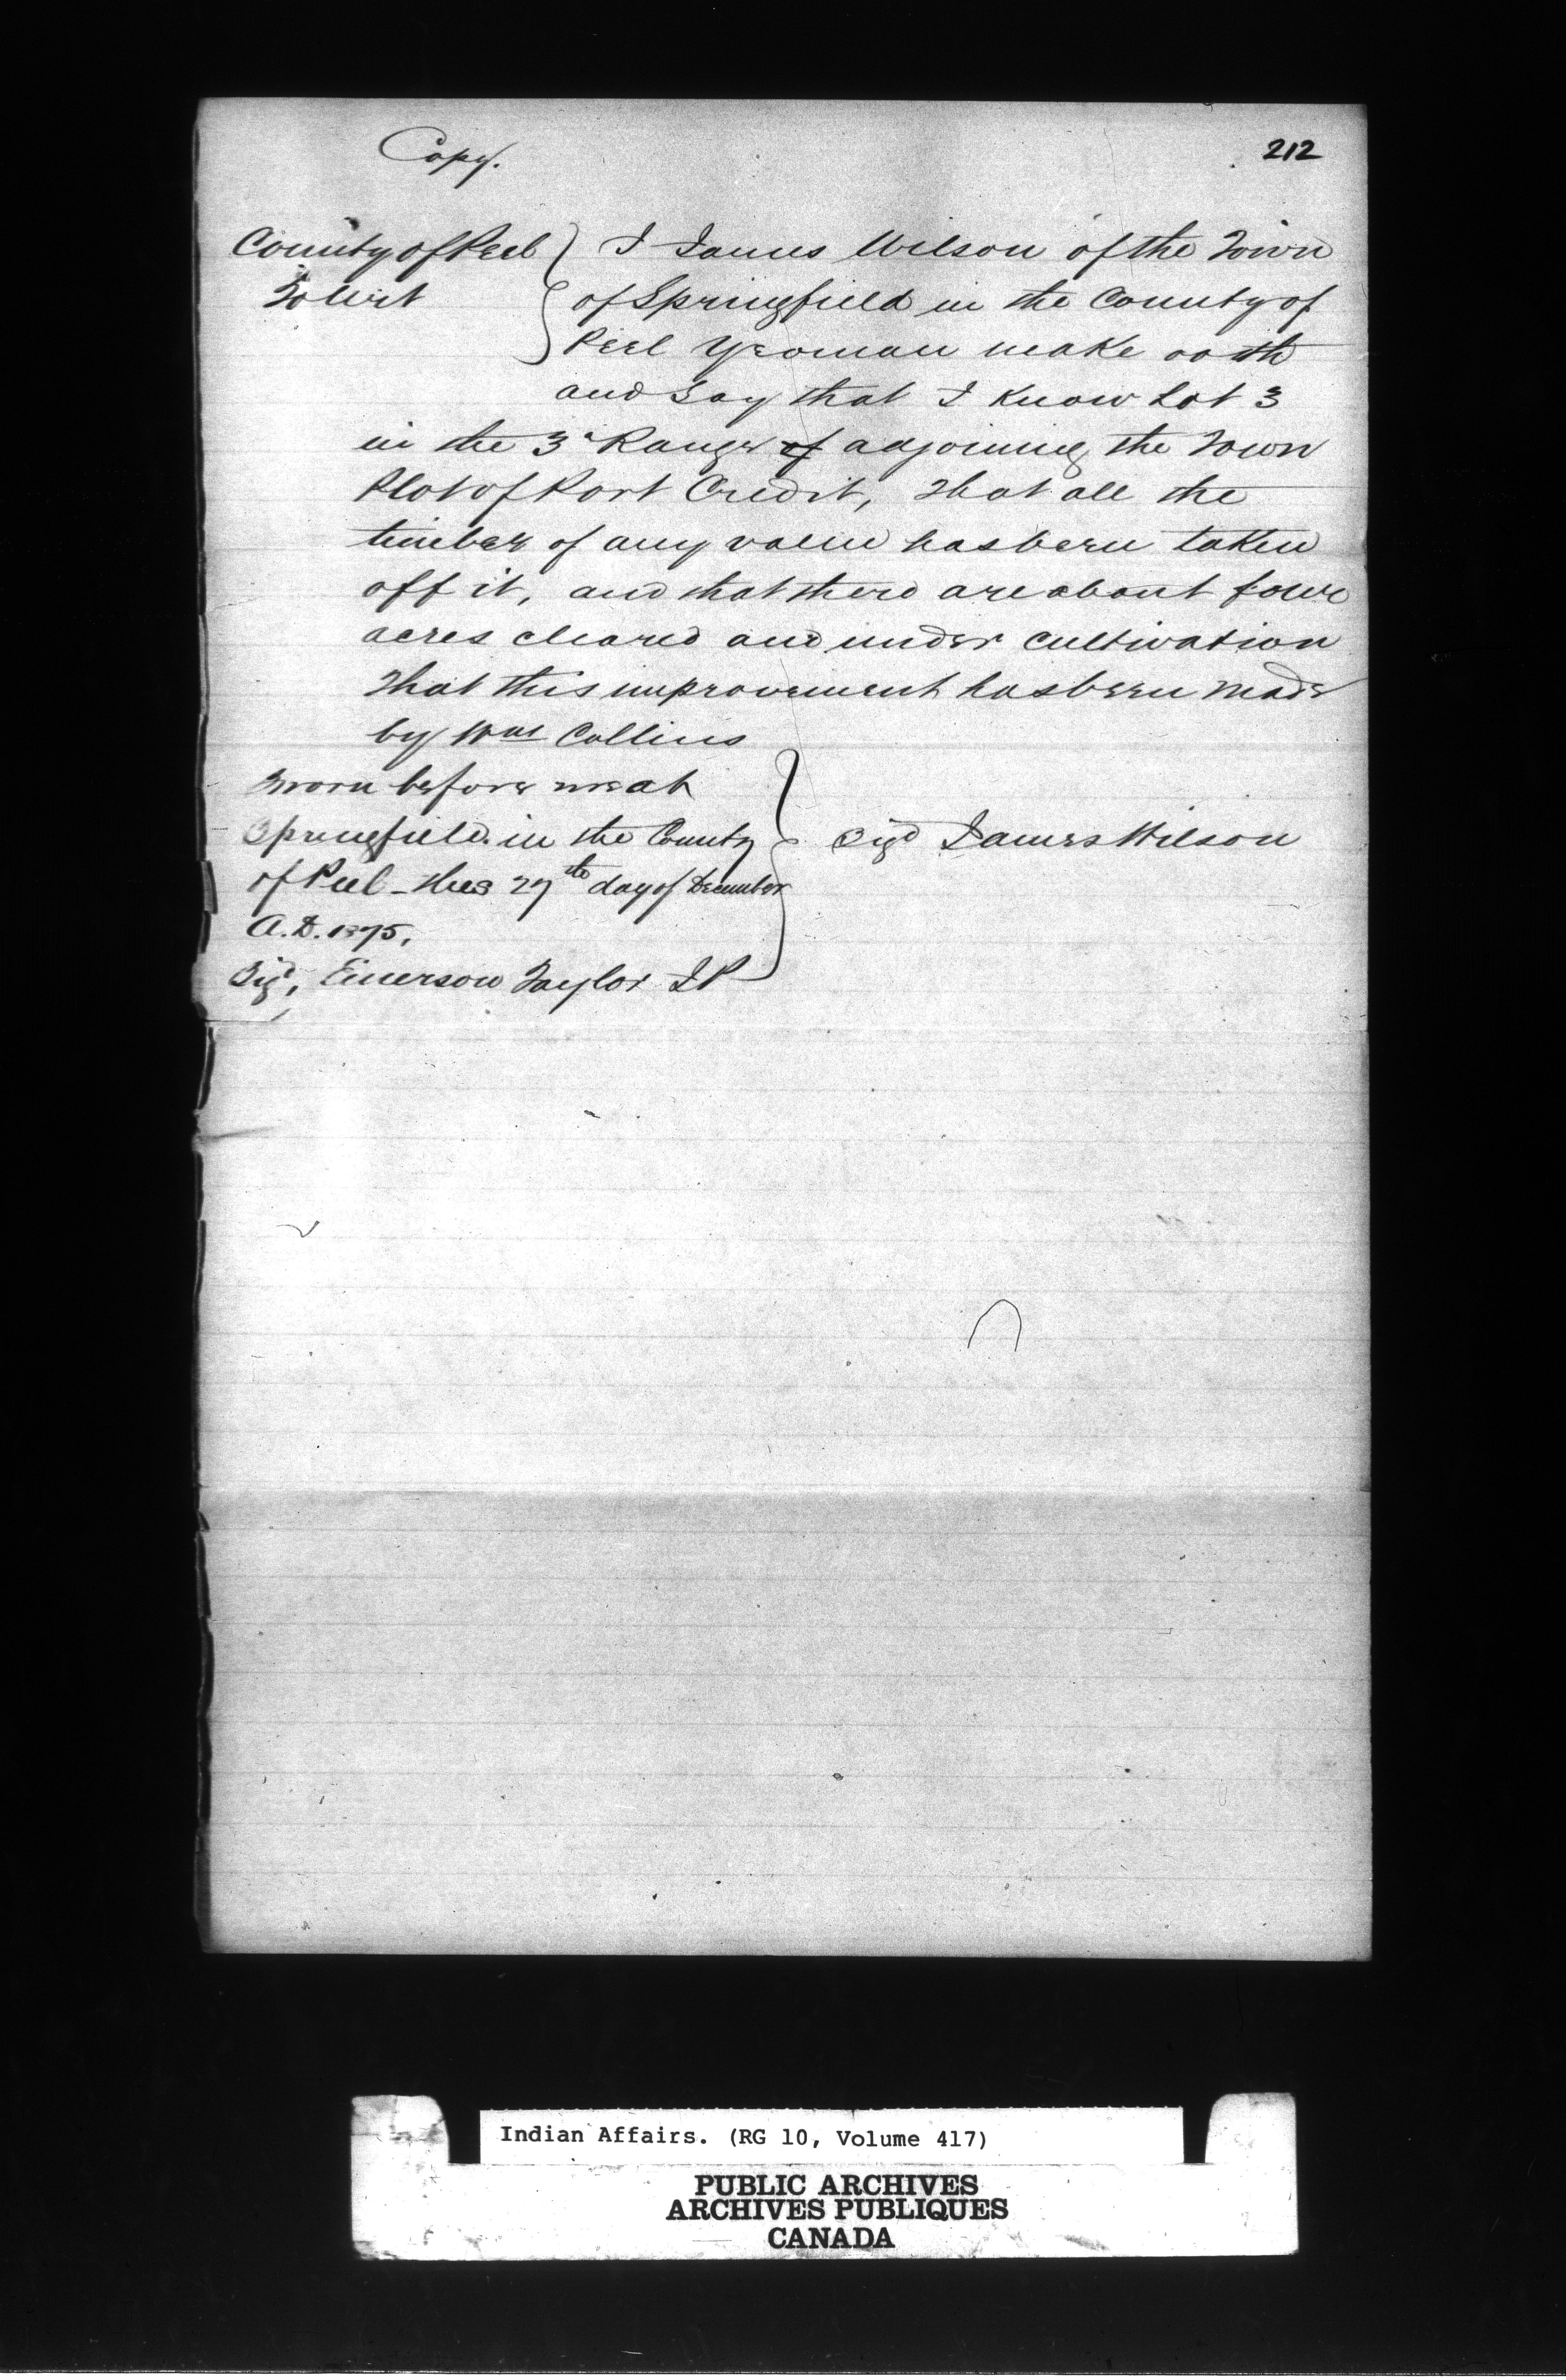 Copy.
212
County of Peel } I James Wilson of the Town
To Wit { of Springfield in the County of
Peel Yeoman make oath
and say that I know Lot 3
in the 3d Range of adjoining the Town
Plot of Port Credit, that all the
timber of any value has been taken
off it, and that there are about four
acres cleared and under cultivation
that this improvement has been made
by Wm Collins
Sworn before me at
Springfield in the County } Sigd James Wilson
of Peel - this 27th day of December
A.D. 1875,
Sigd, Emerson Taylor J P
Indian Affairs. (RG 10, Volume 417)
PUBLIC ARCHIVES
ARCHIVES PUBLIQUES
CANADA